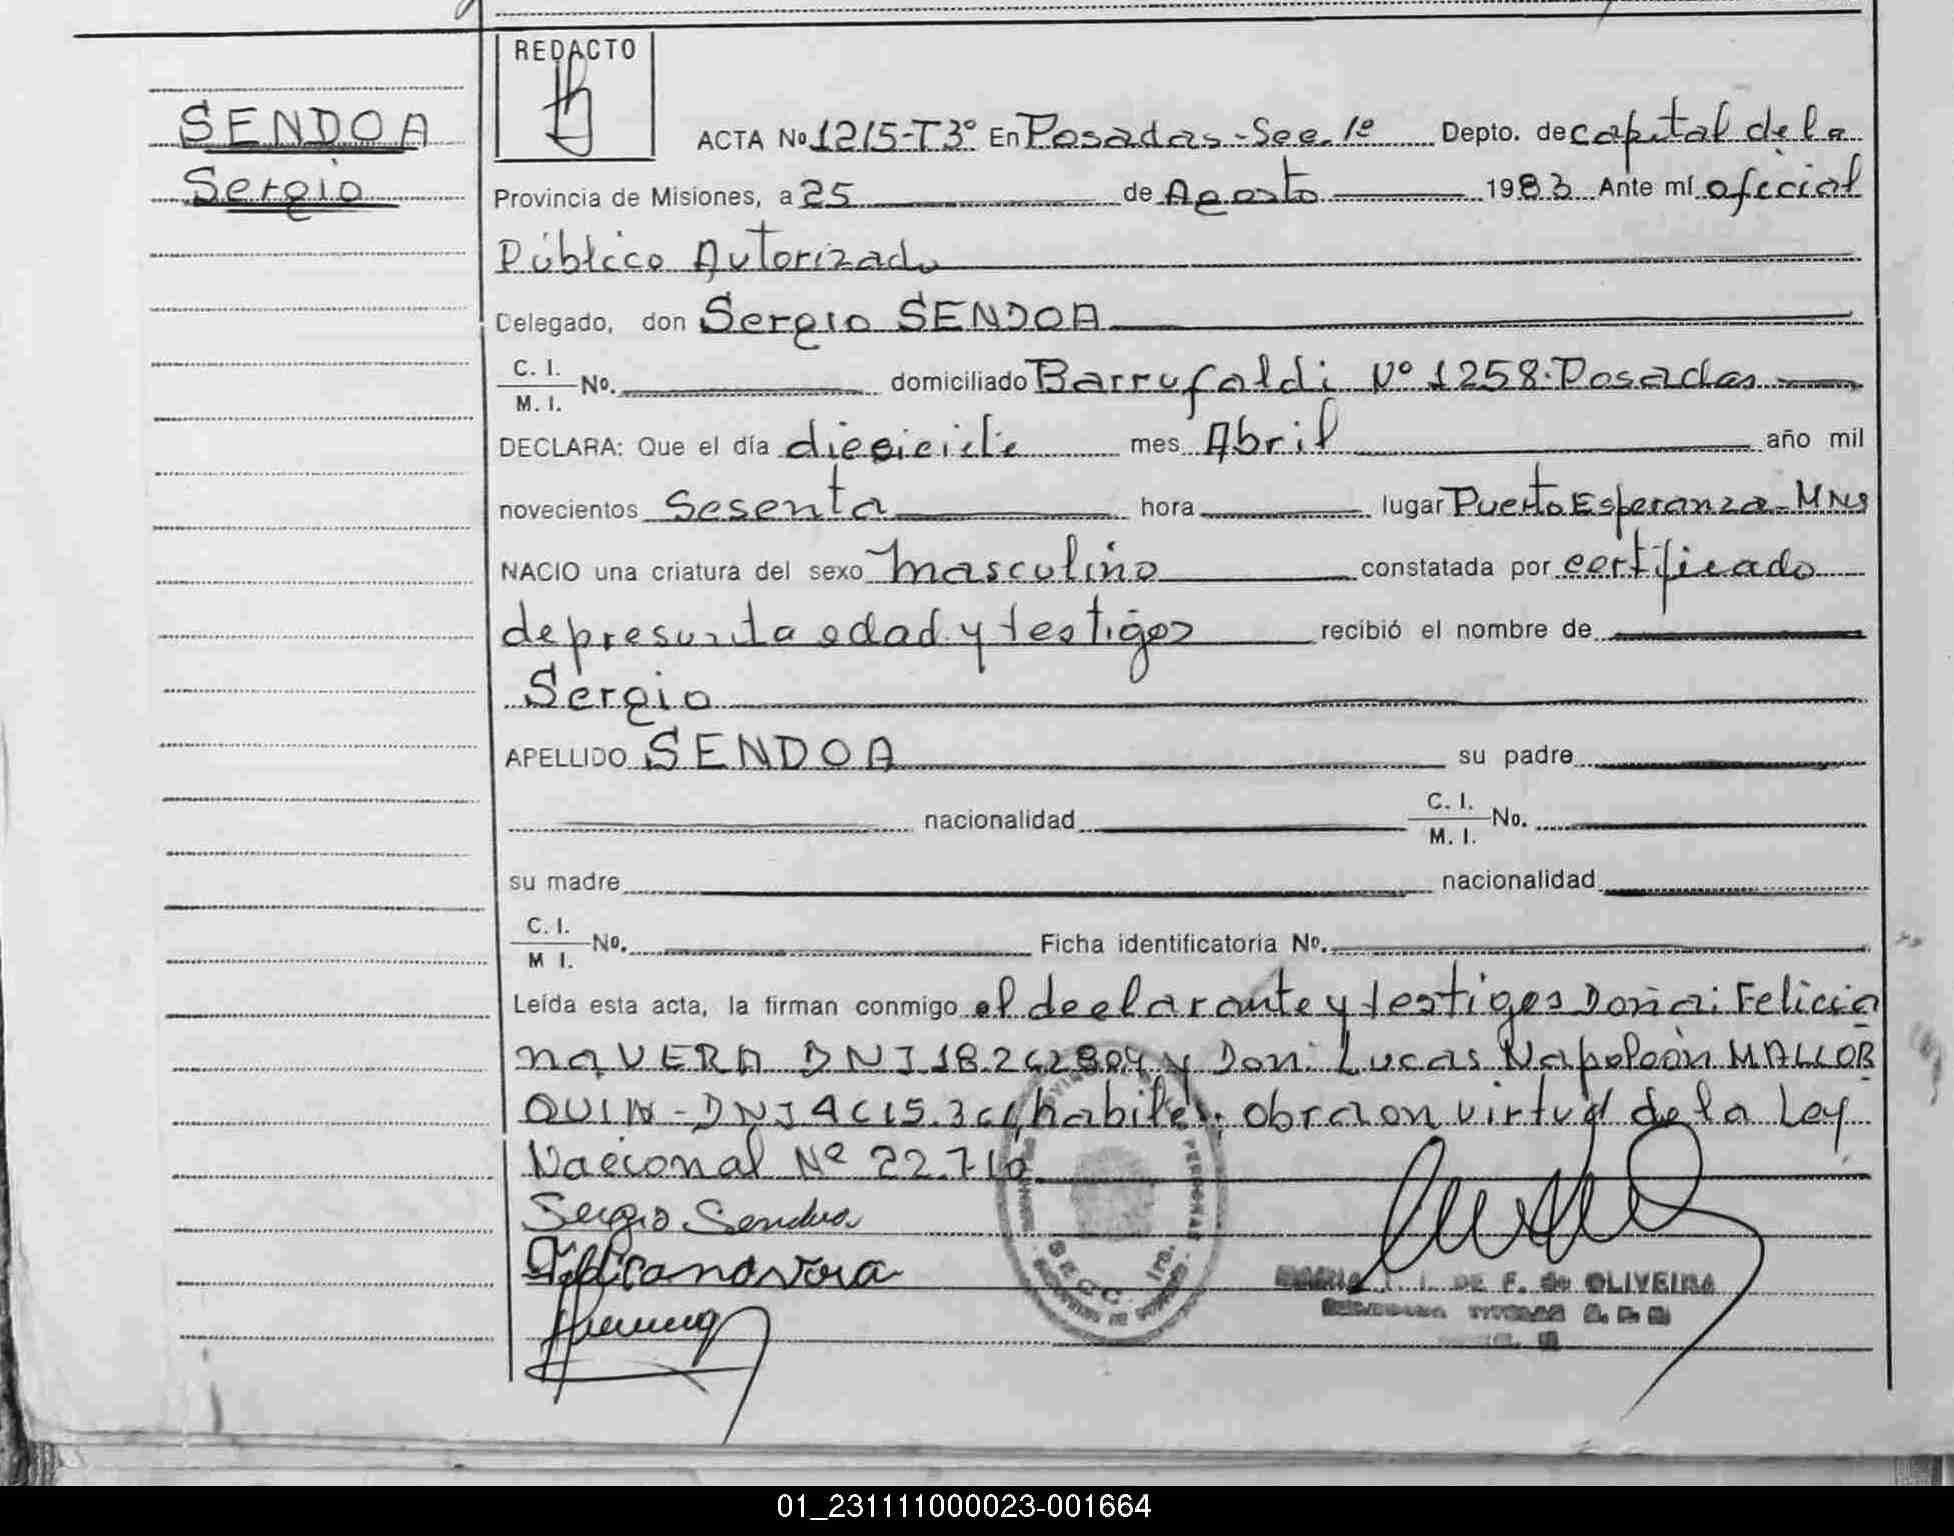 REDACTO
SENDOA
Sergio
ACTA Nº 1215-T3º En Posadas-Sec. 1º Depto. de capital de la
Provincia de Misiones, a 25 de Agosto 1983 Ante mí oficial
Público Autorizado
Delegado, don Sergio SENDOA
C. I. M. I. No. domiciliado Barrufaldi Nº 1258-Posadas
DECLARA: Que el día diesiciete mes Abril año mil
novecientos Sesenta hora lugar Puerto Esperanza-MNS
NACIO una criatura del sexo masculino constatada por certificado
de presunta edad y testigos recibió el nombre de
Sergio
APELLIDO SENDOA su padre
nacionalidad C. I. M. I. No.
su madre nacionalidad
C. I. M I. No. Ficha identificatoria Nº.
Leída esta acta, la firman conmigo el declarante y testigos Doña: Felicia
na VERA DNI 18.242804 y Don: Lucas Napoleón MALLOR
QUIN-DNI habiles. obra en virtud de la Ley
Nacional Nº 22.710
Sergio Sendoa
Feliciana Vera
PERSONAS
SECC. 1ra.
DE F. de OLIVEIRA
01_231111000023-001664